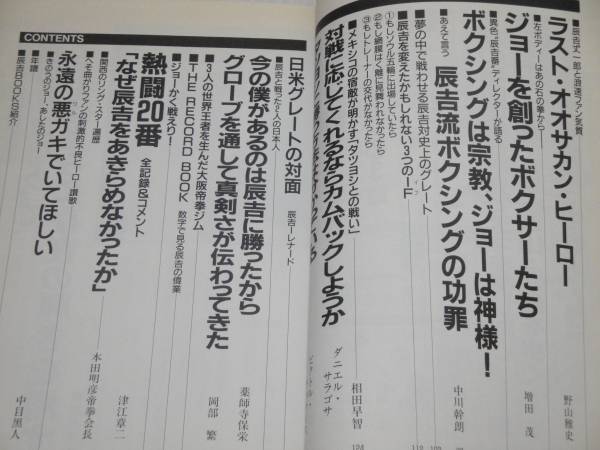 CONTENTS
■辰吉丈一郎と浪速ファン気質
ラスト・オオサカン・ヒーロー
野山雅史
■左ボディーはあの石の拳から
ジョーを創ったボクサーたち
増田 茂
■異色"辰吉番"ディレクターが語る
ボクシングは宗教、ジョーは神様!
中川幹朗
■あえて言う
辰吉流ボクシングの功罪
■夢の中で戦わせる辰吉対史上のグレート
■辰吉を変えたかもしれない3つのIF
①もしソウル五輪に出場していたら
②もし網膜はく離に見舞われなかったら
③もしトレーナーの交代がなかったら
相田早智
124
■メキシコの宿敵が明かす「タツヨシとの戦い」
対戦に応じてくれるならカムバックしようか
ダニエル・サラゴサ
日米グレートの対面
辰吉-レナード
■辰吉と戦った2人の日本人
今の僕があるのは辰吉に勝ったから
薬師寺保栄
グローブを通して真剣さが伝わってきた
岡部 繁
■3人の世界王者を生んだ大阪帝拳ジム
■THE RECORD BOOK 数字で見る辰吉の偉業
■ジョーかく戦えり!
熱闘20番 全記録&コメント
津江章二
「なぜ辰吉をあきらめなかったか」
本田明彦帝拳会長
■関西のリング・スター遍歴
■へそ曲がりファンの刺激的不良ヒーロー讃歌
永遠の悪ガキでいてほしい
中目黒人
■きのうのジョー、あしたのジョー
■年譜
■辰吉BOOKS紹介